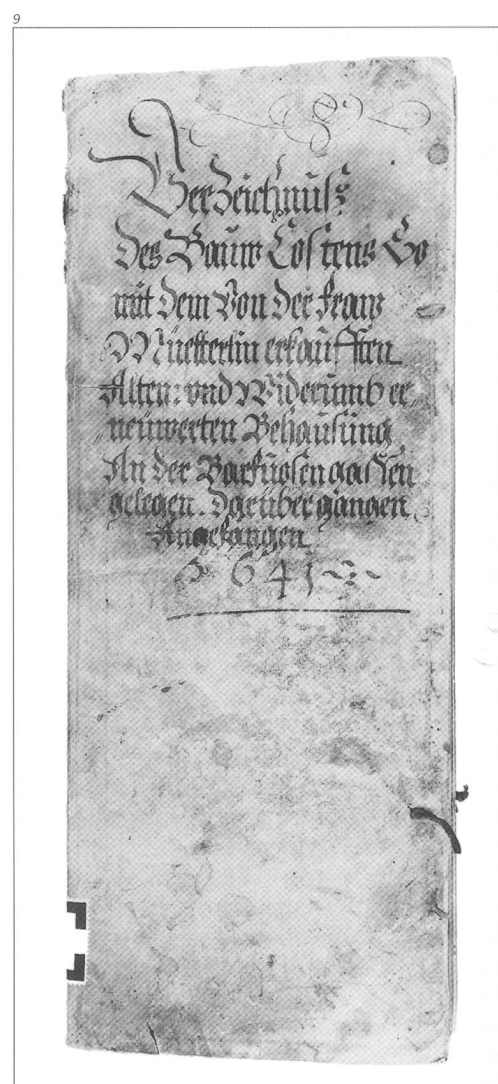 9
Verzeichnuß
des Bauw Costens So
mit dem Von der fraw
Müetterlin erkaufften
Alten: vnd Widerumb er„
„neüwerten Behausung
An der Barfuosen gassen
gelegen. darüber gangen
Angefangen
1641